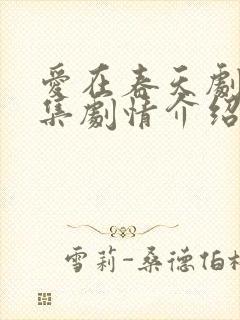 愛在春天劇
集劇情介紹
雪莉-桑德伯格